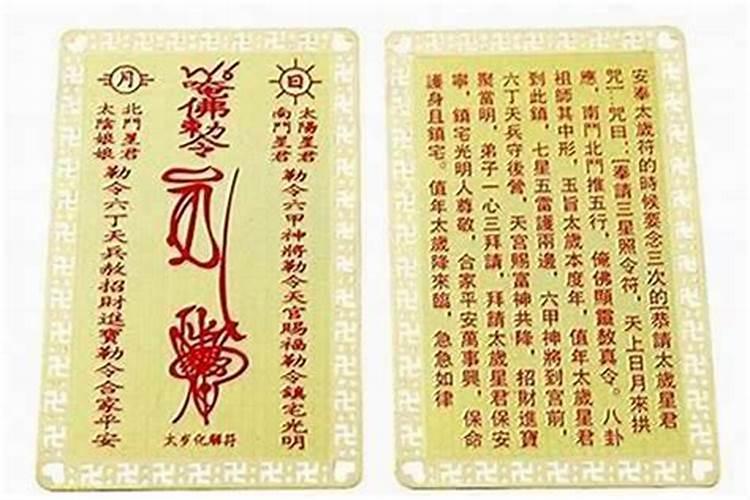 日
太陽星君
南鬥星君
勒令六甲神將勒令天官賜福勒令鎮宅光明
佛勅令
月
北鬥星君
太陰娘娘
勒令六丁天兵赦招財進寶勒令合家平安
太岁化解符
安奉太歲符的時候要念三次的[恭請太歲星君
咒]...咒曰：[奉請三星照令符，天上日月來拱
應，南鬥北鬥推五行，俺佛顯靈敕真令。八卦
祖師其中形，玉旨太歲本度年，值年太歲星君
到此鎮，七星五雷護兩邊，六甲神將到宮前，
六丁天兵守後營，天宮賜富神共降，招財進寶
聚當明，弟子一心三拜請，拜請太歲星君保安
寧，鎮宅光明人尊敬，合家平安萬事興，保命
護身且鎮宅。值年太歲降來臨，急急如律